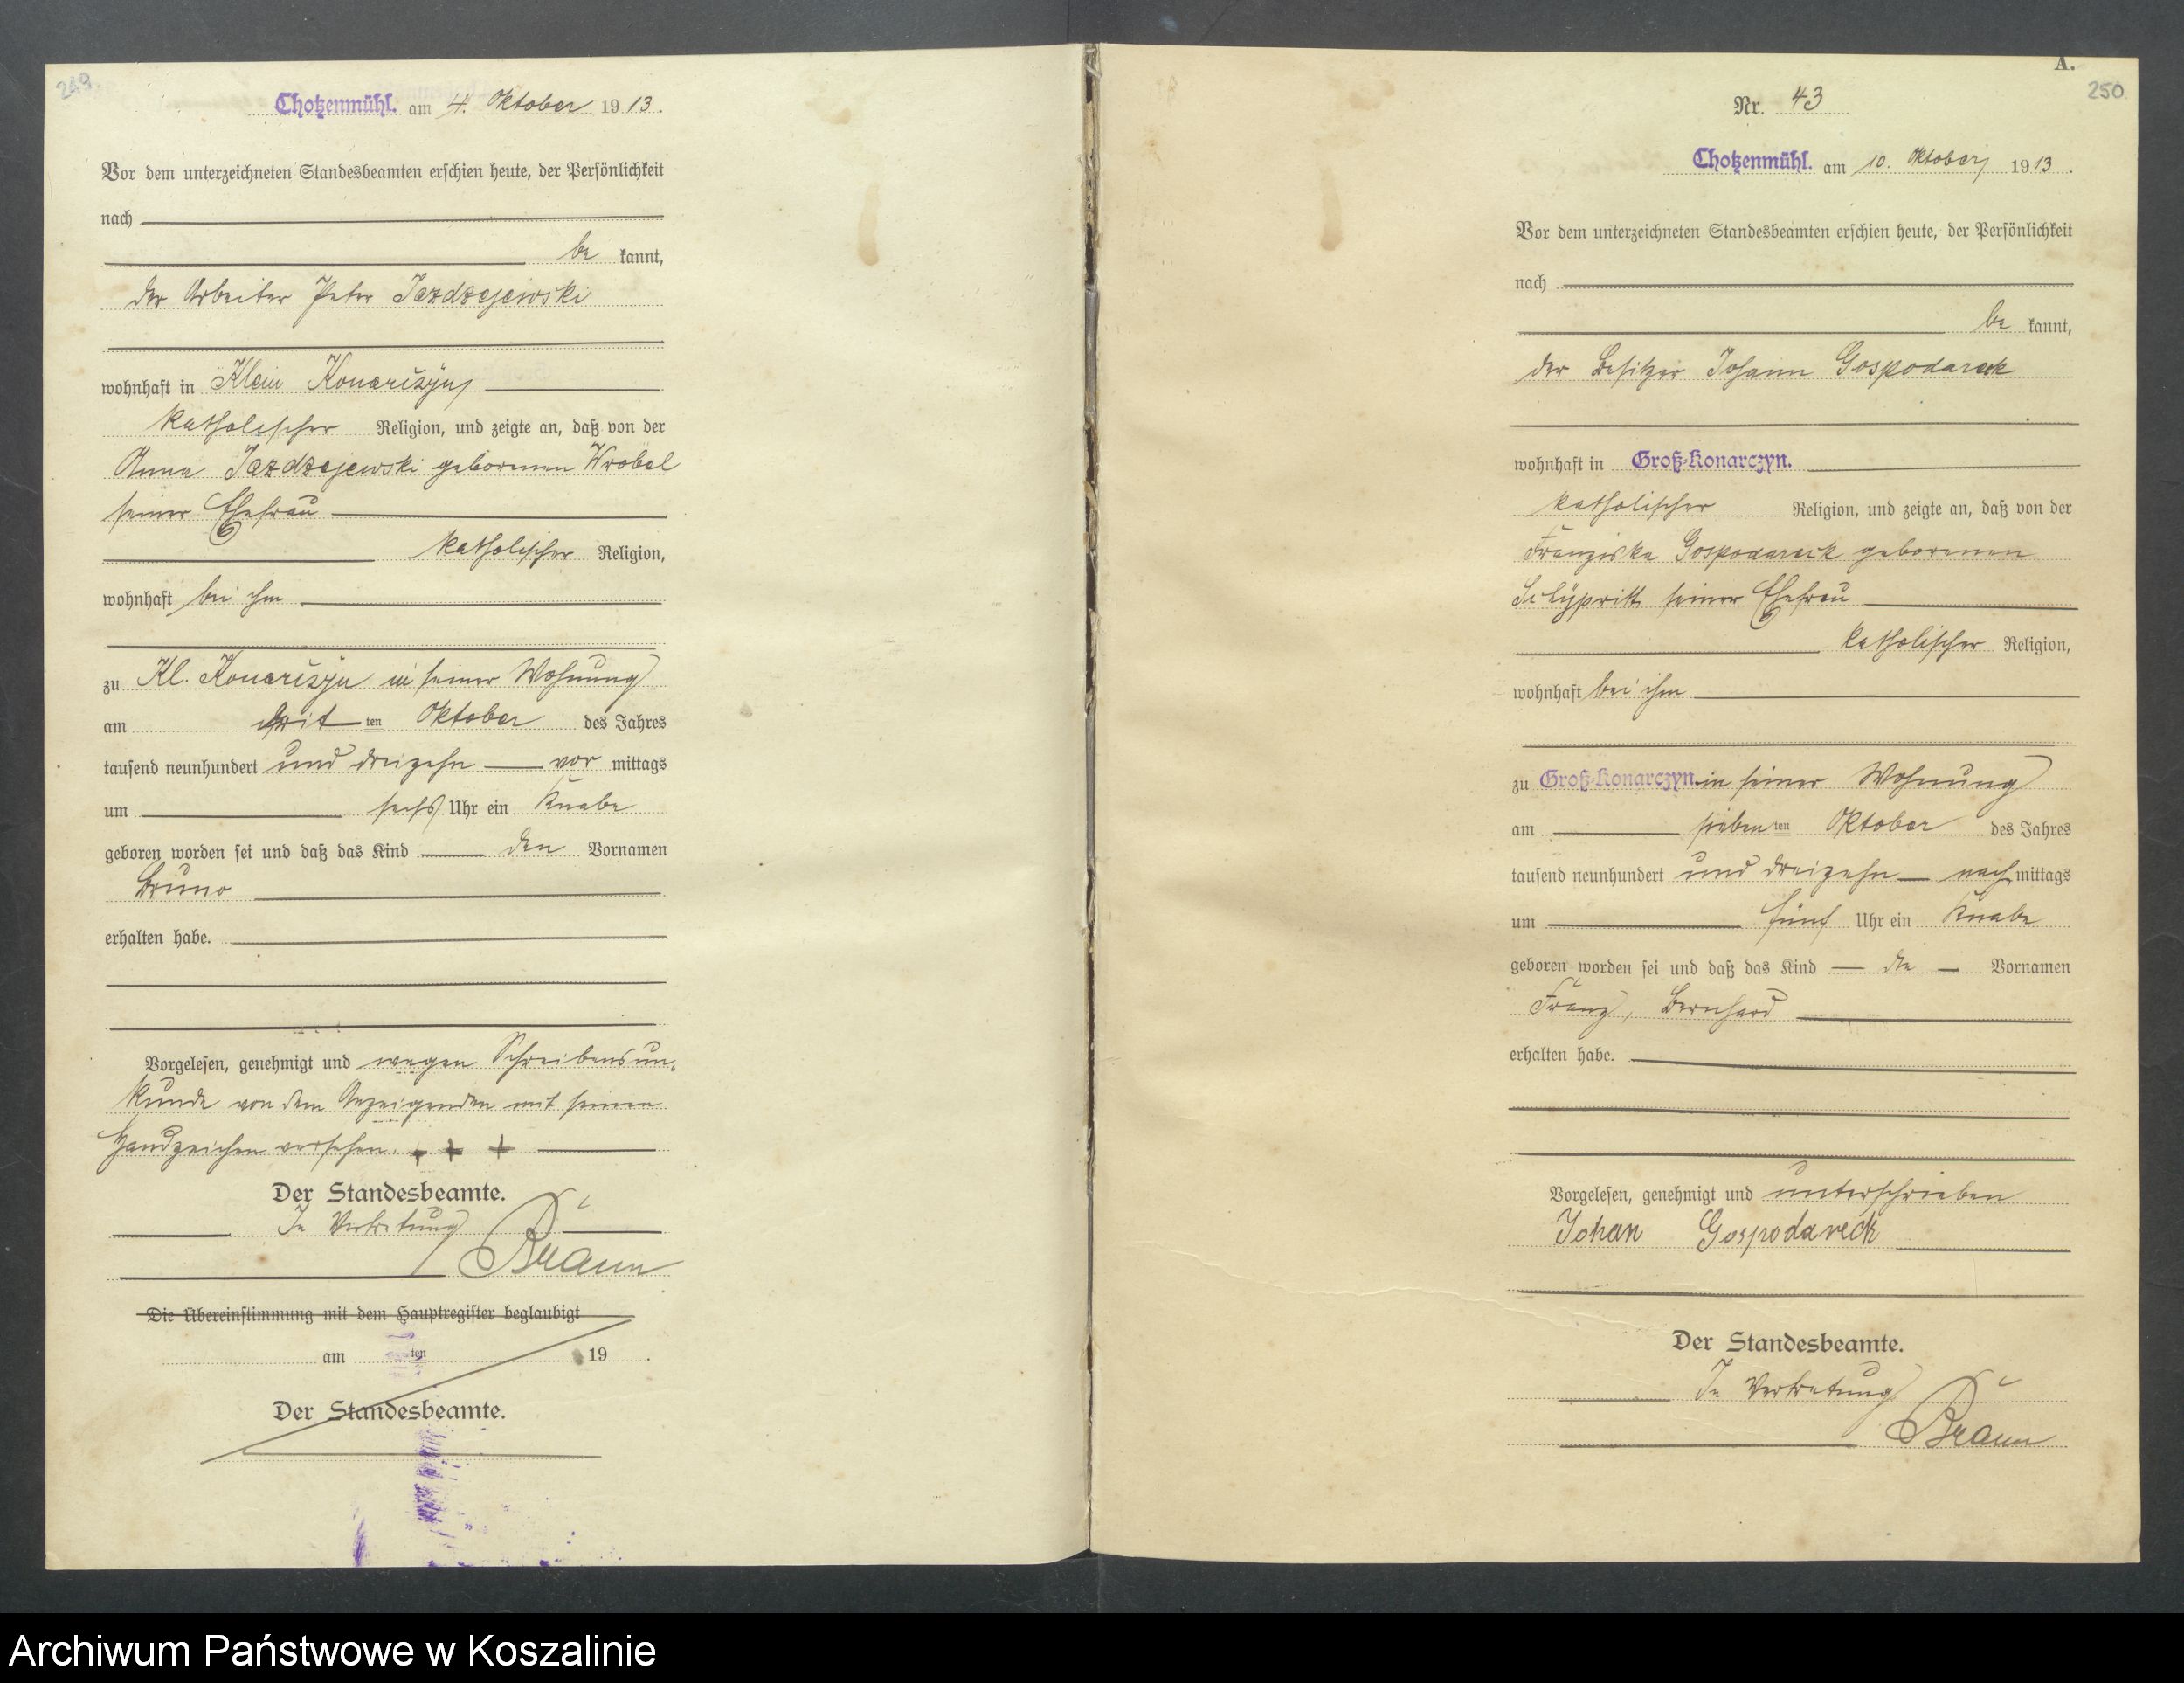 249
Chotzenmühl. am 4. Oktober 1913.
Vor dem unterzeichneten Standesbeamten erschien heute, der Persönlichkeit
nach
be kannt,
der Arbeiter Peter Jazdzejewski
wohnhaft in Klein Konarczyn
katholischer Religion, und zeigte an, daß von der
Anna Jazdzejewski geborenen Wrobel
seiner Ehefrau
katholischer Religion,
wohnhaft bei ihm
zu Kl. Konarczyn in seiner Wohnung
am drit ten Oktober des Jahres
tausend neunhundert und dreizehn vor mittags
um sechs Uhr ein Knabe
geboren worden sei und daß das Kind den Vornamen
Bruno
erhalten habe.
Vorgelesen, genehmigt und wegen Schreibensun-
kunde von dem Anzeigenden mit seinem
Handzeichen versehen. + + +
Der Standesbeamte.
In Vertretung
Braun
Die Übereinstimmung mit dem Hauptregister beglaubigt
am ten 19 .
Der Standesbeamte.
A.
250
Nr. 43
Chotzenmühl. am 10. Oktober 1913.
Vor dem unterzeichneten Standesbeamten erschien heute, der Persönlichkeit
nach
be kannt,
der Besitzer Johann Gospodareck
wohnhaft in Groß-Konarczyn.
katholischer Religion, und zeigte an, daß von der
Franziska Gospodareck geborenen
seiner Ehefrau
katholischer Religion,
wohnhaft bei ihm
zu Groß-Konarczyn. in seiner Wohnung
am sieben ten Oktober des Jahres
tausend neunhundert und dreizehn nach mittags
um fünf Uhr ein Knabe
geboren worden sei und daß das Kind die Vornamen
Franz, Bernhard
erhalten habe.
Vorgelesen, genehmigt und unterschrieben
Johan Gospodareck
Der Standesbeamte.
In Vertretung
Braun
Archiwum Państwowe w Koszalinie